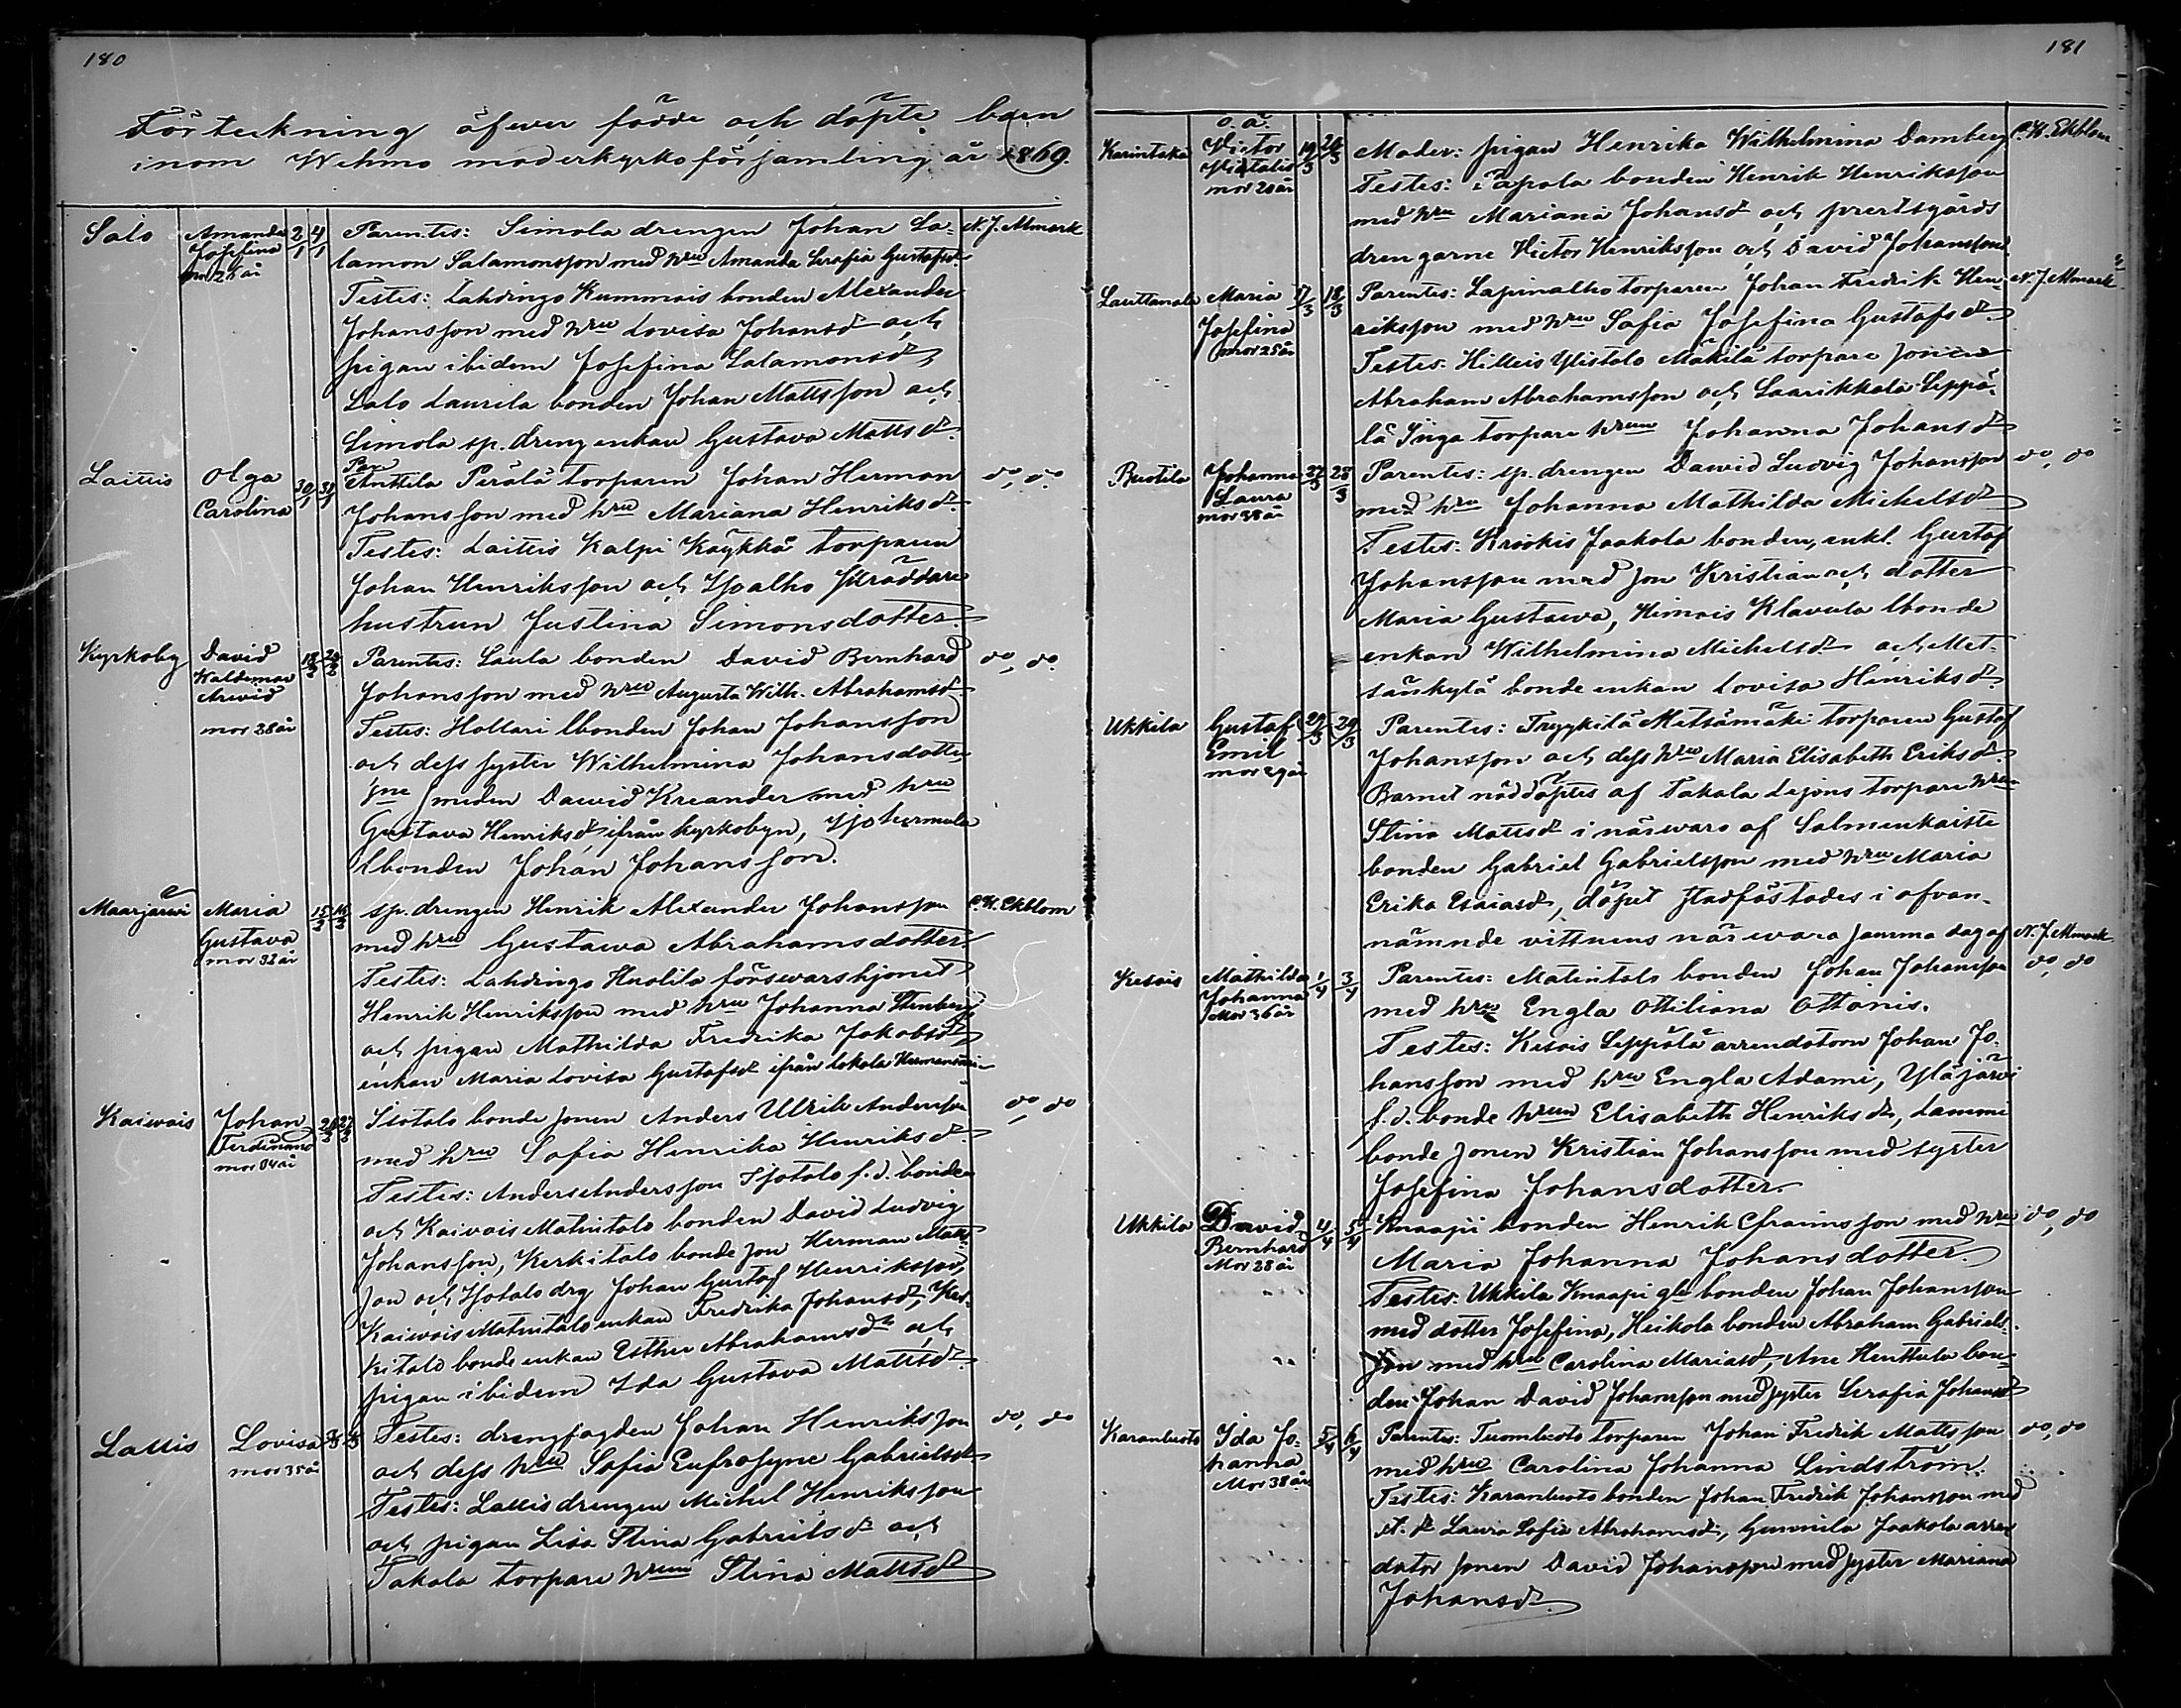 180
Förteckning öfwer födde och döpte barn
inom Wehmo moderkyrkoförsamling år 1869.
Salo Amanda Josefina mor 25 år 2/1 4/1 Parentes: Simola drengen Johan Sa- N. J. Almark
lamon Salamonsson med hru Amanda Serafia Gustafsd.
Testes: Lahdingo Kummois bonden Alexander
Johansson med hru Lovisa Johansd och
pigan ibidem Josefina Salamonsd,
Salo Laurila bonden Johan Mattsson och
Simola sp. dreng enkan Gustava Mattsd.
Laitiis Olga Carolina 30/1 31/1 Par Anttila Perälä torparen Johan Herman do, do
Johansson med hru Mariana Henriksd.
Testes: Laitiis Kalpi Käykkä torparen
Johan Henriksson och Isoalho skräddare
hustrun Justina Simonsdotter.
Kyrkoby David Waldemar Arvid mor 28 år Parentes: Laula bonden David Bernhard do, do
Johansson med hru Augusta Wilh. Abrahamsd
Testes: Hollari lbonden Johan Johansson
och dess syster Wilhelmina Johansdotter
smeden David Kreander med hru
Gustava Henriksd, ifrån kyrkobyn,
lbonden Johan Johansson.
Maarjärwi Maria Gustava mor 32 år 15/2 16/2 sp. drengen Henrik Alexander Johansson C. W. Ekblom
med hru Gustawa Abrahamsdotter
Testes: Lahdingo Huolila förswarshjonet
Henrik Henriksson med hru Johanna Stenberg
och pigan Mathilda Fredrika Jakobsd
enkan Maria Lovisa Gustafsd ifrån Lokala
Kaiwais Johan Ferdinand mor 34 år 26/2 27/2 Isotalo bonde sonen Anders Ulrik Andersson do, do
med hru Sofia Henrika Henriksd.
Testes: Anders Andersson Isotalo f.d. bonden
och Kaivais Matintalo bonden David Ludvig
Johansson, Kerkitalo bonde son Herman Matts-
son och Isotalo drg Johan Gustaf Henriksson,
Kaiwais Matintalo enkan Fredrika Johansd, Ker-
kitalo bonde enkan Esther Abrahamsd och
pigan ibidem Ida Gustava Mattsd.
Lallis Lovisa mor 35 år Testes: drengfogden Johan Henriksson do, do
och dess hru Sofia Eufrosyne Gabrielsd
Testes: Lallis drengen Michel Henriksson
och pigan Lisa Stina Gabrielsd och
Takala torpare hrun Stina Mattsd
181
Karintaka o. ä. Victor Vitalis mor 20 år 19/3 20/3 Moder: pigan Henrika Wilhelmina Damberg C. W. Ekblom
Testes: bonden Henrik Henriksson
med hru Mariana Johansd och prestgårds
drengarne Victor Henriksson och David Johansson.
Lauttanala Maria Josefina mor 25 år 17/3 18/3 Parentes: Lapinalho torparen Johan Fredrik Hen- N. J. Almark
riksson med hru Sofia Josefina Gustafsd.
Testes: Hilleis Ylistalo Mäkilä torpare sonen
Abraham Abrahamsson och Saarikkala Seppä-
lä Inga torpare hrun Johanna Johansd
Ruotila Johanna Laura mor 38 år 27/3 28/3 Parentes: sp. drengen Dawid Ludvig Johansson do, do
med hru Johanna Mathilda Michelsd
Testes: Krookis Jaakola bonden, enkl. Gustaf
Johansson med son Kristian och dotter
Maria Gustawa, Himois Klavula lbonde
enkan Wilhelmina Michelsd och Met-
sänkylä bonde enkan Lovisa Hinriksd.
Ukkila Gustaf Emil mor 29 år 29/3 29/3 Parentes: Metsämäki torparen Gustaf
Johansson och dess hru Maria Elisabeth Eriksd.
Barnet nöddöptes af Takala Lejons torpare hrun
Stina Mattsd i närwaro af Salmenkaitte
bonden Gabriel Gabrielsson med hru Maria
Erika Esaiasd, döpet stadfästades i ofvan-
nämnde vittnens närwara samma dag af N. J. Almark
Kesois Mathilda Johanna Mor 36 år 1/4 3/4 Parentes: Matintalo bonden Johan Johansson do, do
med hru Engla Ottiliana Ottonis.
Testes: Kesois Seppälä arrendatorn Johan Jo-
hansson med hru Engla Adami, Yläjärvi
f.d. bonde hrun Elisabeth Henriksd, Lammi
bonde sonen Kristian Johansson med syster
Josefina Johansdotter.
Ukkila David Bernhard Mor 28 år 4/4 5/4 Knaapi bonden Henrik Efraimsson med hru do, do
Maria Johanna Johansdotter.
Testes: Ukkila Knaapi gl. bonden Johan Johansson
med dotter Josefina, Heikola bonden Abraham Gabriels-
son med hru Carolina Mariasd, Ane Henttula bon-
den Johan David Johansson med syster Serafia Johansd
Karanluoto Ida Johanna Mor 38 år 5/4 6/4 Parentes: Tuomluoto torparen Johan Fredrik Mattsson do, do
med hru Carolina Johanna Lindström.
Testes: Karanluoto bonden Johan Fredrik Johansson med
Laura Sofia Abrahamsd, Gunnila Jaakola arren
dator sonen David Johansson med syster Mariana
Johansd.